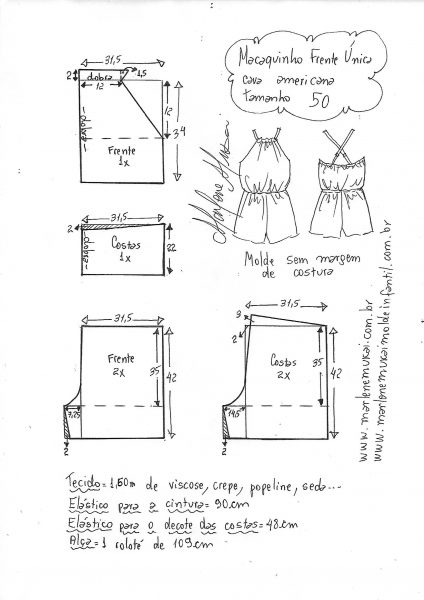 Macaquinho Frente Única
cava americana
tamanho 50
31,5
2
dobra
1,5
12
dobra
12
34
Frente
1x
31,5
2
dobra
Costas
1x
22
Marlene Mukai
Molde sem margem
de costura
31,5
Frente
2x
35
42
7,25
2
31,5
3
2
Costas
2x
35
42
14,5
2
www.marlenemukai.com.br
www.marlenemukaimoldeinfantil.com.br
Tecido=1,60m de viscose, crepe, popeline, seda...
Elástico para a cintura= 90.cm
Elástico para o decote das costas=48.cm
Alça=1 rolotê de 109.cm